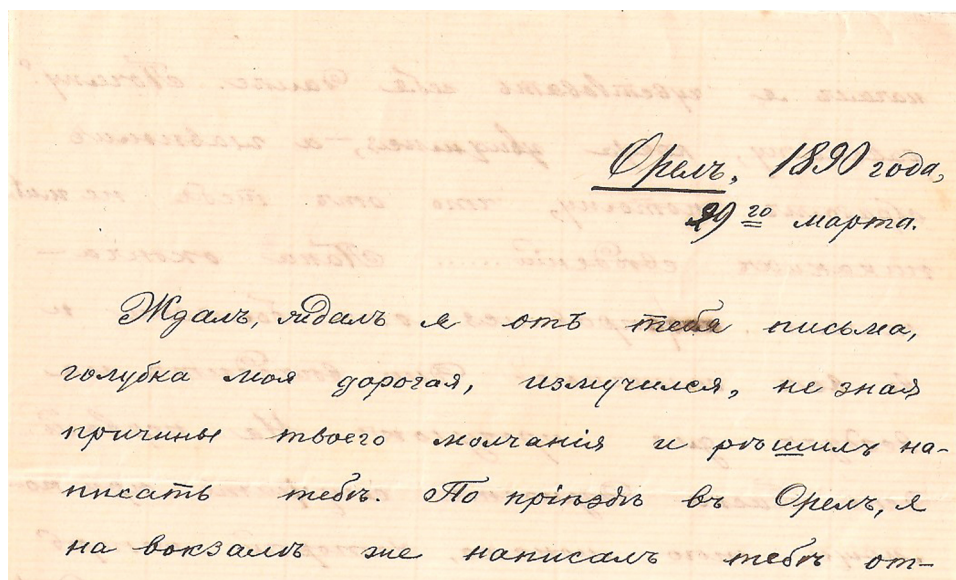 Орелъ, 1890 года,
29го марта.
Ждалъ, ждалъ я отъ тебя письма,
голубка моя дорогая, измучился, не зная
причины твоего молчанія и рѣшилъ на-
писать тебѣ. По пріѣздѣ въ Орелъ, я
на вокзалѣ же написалъ тебѣ от-